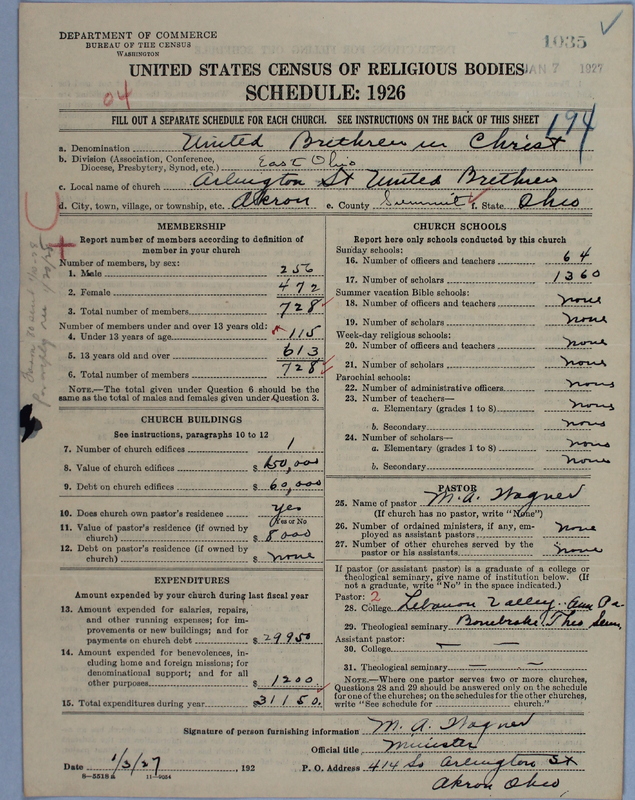 DEPARTMENT OF COMMERCE
BUREAU OF THE CENSUS
WASHINGTON
1035
JAN 7 1927
UNITED STATES CENSUS OF RELIGIOUS BODIES
SCHEDULE: 1926
04
194
FILL OUT A SEPARATE SCHEDULE FOR EACH CHURCH. SEE INSTRUCTIONS ON THE BACK OF THIS SHEET
a. Denomination United Brethren in Christ
b. Division (Association, Conference, Diocese, Presbytery, Synod, etc.) East Ohio
c. Local name of church Arlington St United Brethren
d. City, town, village, or township, etc. Akron e. County Summit f. State Ohio
MEMBERSHIP
Report number of members according to definition of
member in your church
Number of members, by sex:
1. Male 256
2. Female 472
3. Total number of members 728
Number of members under and over 13 years old:
4. Under 13 years of age 115
5. 13 years old and over 613
6. Total number of members 728
NOTE.—The total given under Question 6 should be the
same as the total of males and females given under Question 3.
CHURCH BUILDINGS
See instructions, paragraphs 10 to 12
7. Number of church edifices 1
8. Value of church edifices $ 150,000
9. Debt on church edifices $ 60,000
10. Does church own pastor's residence yes
(Yes or No)
11. Value of pastor's residence (if owned by
church) $ 8000
12. Debt on pastor's residence (if owned by
church) $ none
EXPENDITURES
Amount expended by your church during last fiscal year
13. Amount expended for salaries, repairs,
and other running expenses; for im-
provements or new buildings; and for
payments on church debt $ 29950
14. Amount expended for benevolences, in-
cluding home and foreign missions; for
denominational support; and for all
other purposes $ 1200
15. Total expenditures during year $ 31150.
CHURCH SCHOOLS
Report here only schools conducted by this church
Sunday schools:
16. Number of officers and teachers 64
17. Number of scholars 1360
Summer vacation Bible schools:
18. Number of officers and teachers none
19. Number of scholars none
Week-day religious schools:
20. Number of officers and teachers none
21. Number of scholars none
Parochial schools:
22. Number of administrative officers none
23. Number of teachers—
a. Elementary (grades 1 to 8) none
b. Secondary none
24. Number of scholars—
a. Elementary (grades 1 to 8) none
b. Secondary none
PASTOR
25. Name of pastor M. A. Wagner
(If church has no pastor, write "None")
26. Number of ordained ministers, if any, em-
ployed as assistant pastors none
27. Number of other churches served by the
pastor or his assistants none
If pastor (or assistant pastor) is a graduate of a college or
theological seminary, give name of institution below. (If
not a graduate, write "No" in the space indicated.)
Pastor: 2
28. College Lebanon Valley Pa.
29. Theological seminary Bonebrake Theo Sem.
Assistant pastor:
30. College — —
31. Theological seminary — —
NOTE.—Where one pastor serves two or more churches,
Questions 28 and 29 should be answered only on the schedule
for one of the churches; on the schedules for the other churches,
write "See schedule for church."
Signature of person furnishing information M. A. Wagner
Official title Minister
Date 1/3/27, 192 P. O. Address 414 So Arlington St
8—5518a 11—9054 Akron Ohio